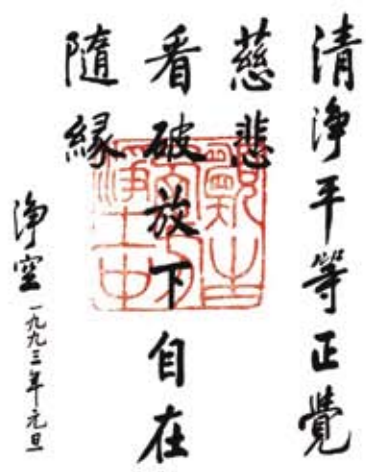 清淨平等正覺
慈悲
看破放下自在
隨緣
淨空 一九九三年元旦